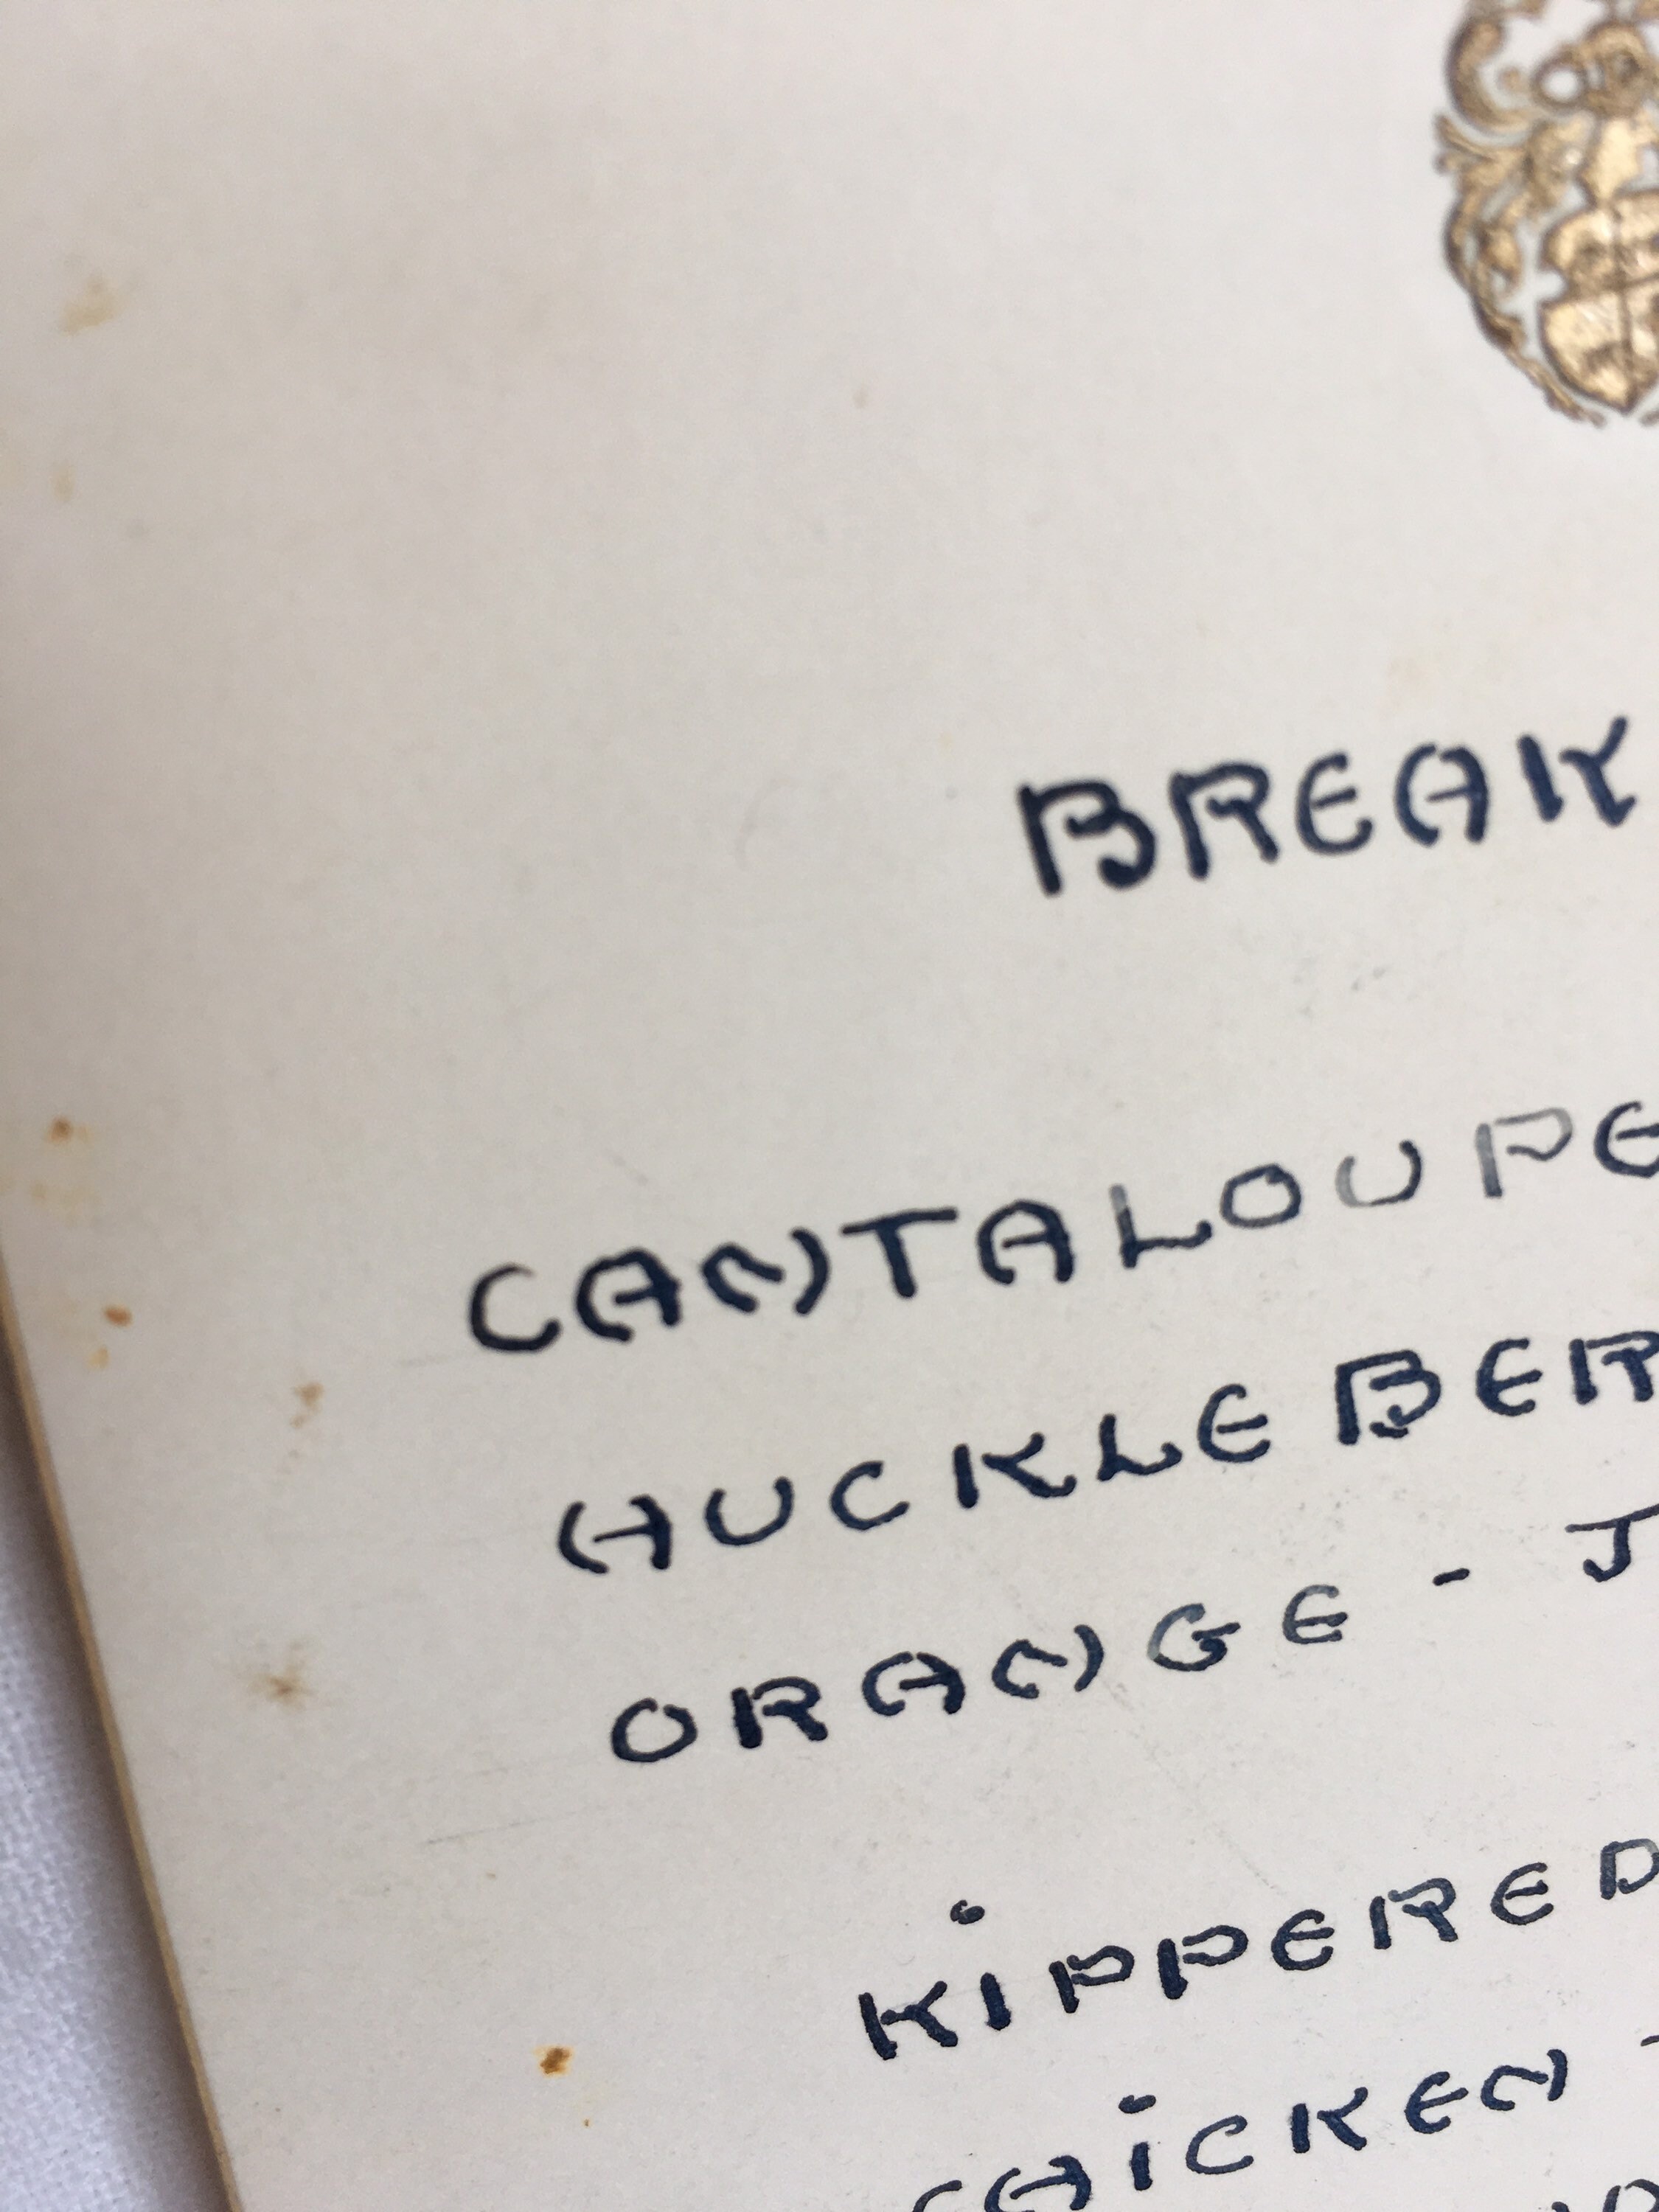 BREAK
CANTALOUPE
HUCKLEBER
ORANGE - J
KiPPERED
CHiCKEN -